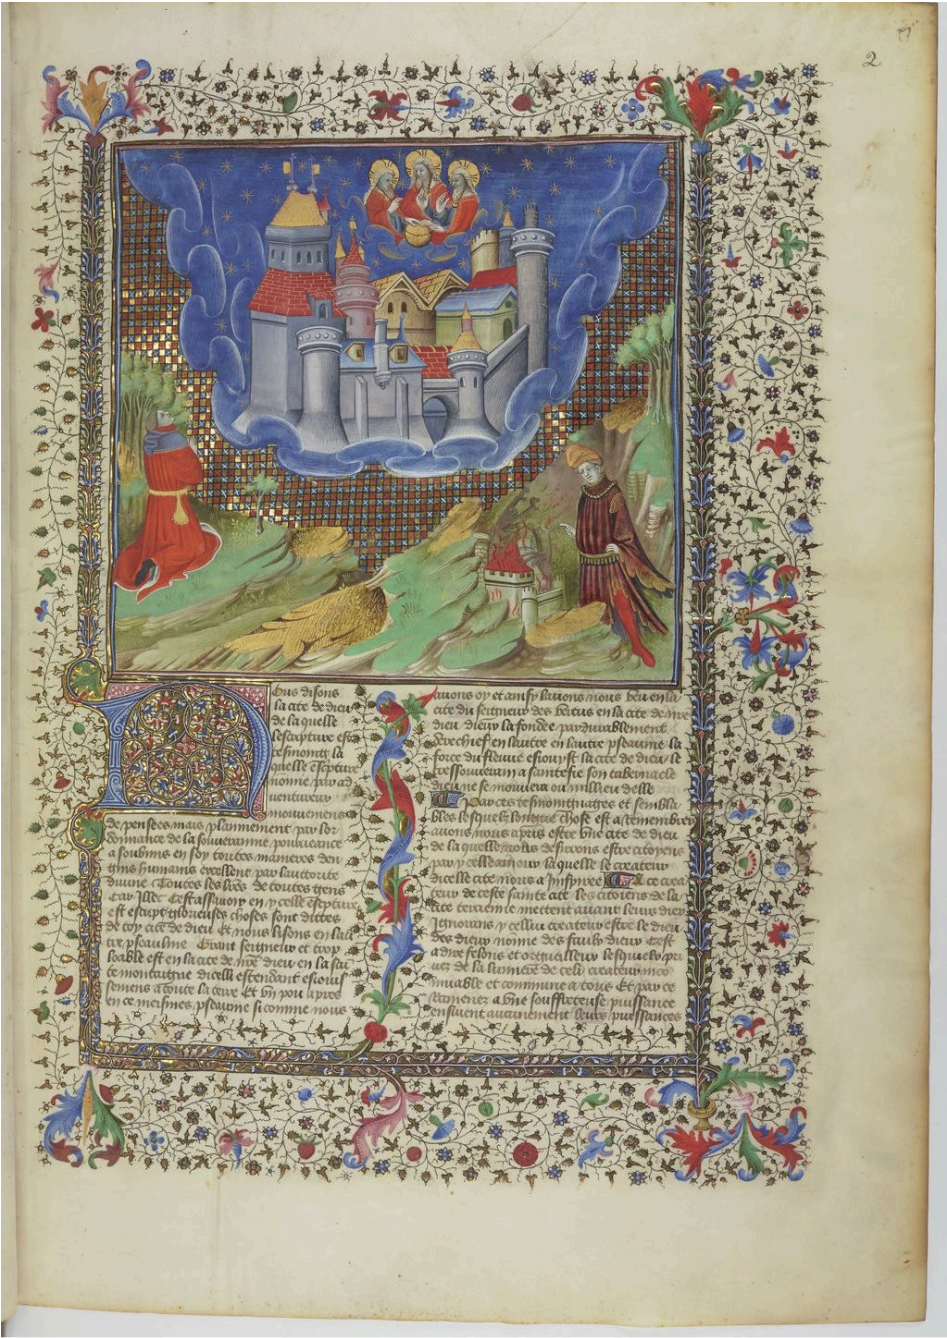 2
Nous disons
la cite de dieu
de laquelle
lescripture est
tesmoing la
quelle escripture
nonne par ad
ventureux
mouvemens
de pensees mais plainnement par lor
donnance de la souverainne pourveance
a soubmis en soy toutes manieres den
gins humains excellent par lauctorite
divine Toutes les lois de toutes gens
Car illec cest assavoir en ycelle escripture
est escript glorieuses choses sont dittes
de toy cite de dieu Et nous lisons en lau
tre pseaulme Grant seigneur et trop
loable est en la cite de nre dieu en la sai
te montaigne dicelli estendant esiouis
semens a toute la terre Et un pou apres
en ce meismes pseaume si comme nous
avons oy et ainsy lavons nous veu en la
cite du seigneur des vertus en la cite de nre
dieu dieu la fondee pardurablement
derechief en lautre en lautre pseaume la
force du fleuve esiouyst la cite de dieu le
tressouverain a saintefie son tabernacle
dieu ne se mouvera ou millieu delle
Par ces tesmoingnages et sembla
bles lesquelz longue chose est a remembrer
avons nous apris estre une cite de dieu
de laquelle nous desirons estre citoyens
par ycelle amour laquelle le createur
dicelle cite nous a inspiree A ce crea
teur de ceste sainte cite les citoiens de la
cite terrienne mettent avant leurs dieux
Ignorans ycellui createur estre le dieu
des dieux non ne des faulx dieux cest
a dire felons et orgueilleux lesquelx pri
vez de la lumiere de celi createur inco
muable et commune a tous Et par ce
ramenez a une souffreteuse puissance
ensuient aucunement leurs puissances